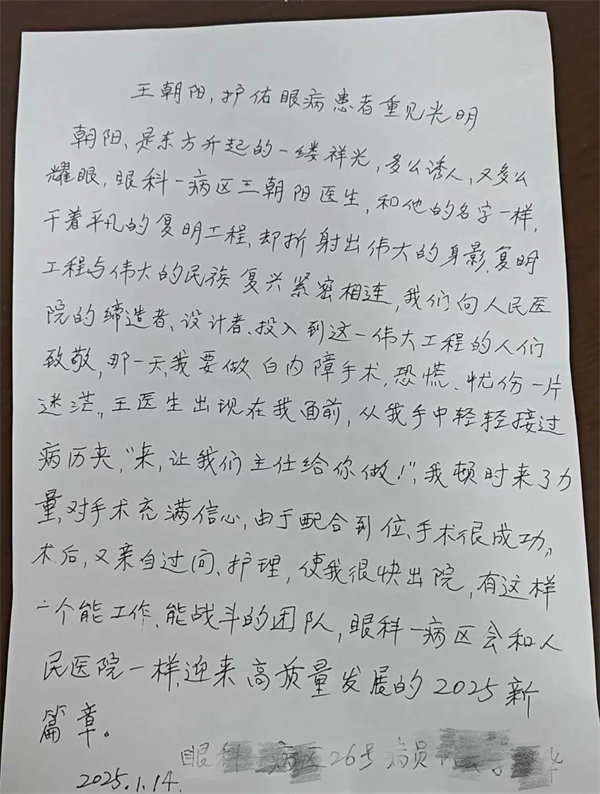 王朝阳,护佑眼病患者重见光明
朝阳,是东方升起的一缕祥光,多么诱人,又多么
耀眼,眼科一病区王朝阳医生,和他的名字一样,
干着平凡的复明工程,却折射出伟大的身影.复明
工程与伟大的民族复兴紧密相连,我们向人民医
院的缔造者、设计者、投入到这一伟大工程的人们
致敬,那一天,我要做白内障手术,恐慌、忧伤一片
迷茫,王医生出现在我面前,从我手中轻轻接过
病历夹,"来,让我们主任给你做!",我顿时来了力
量,对手术充满信心,由于配合到位、手术很成功,
术后,又亲自过问、护理,使我很快出院,有这样
一个能工作、能战斗的团队,眼科一病区会和人
民医院一样,迎来高质量发展的2025新
篇章。
眼科 病区265 病员
2025.1.14.